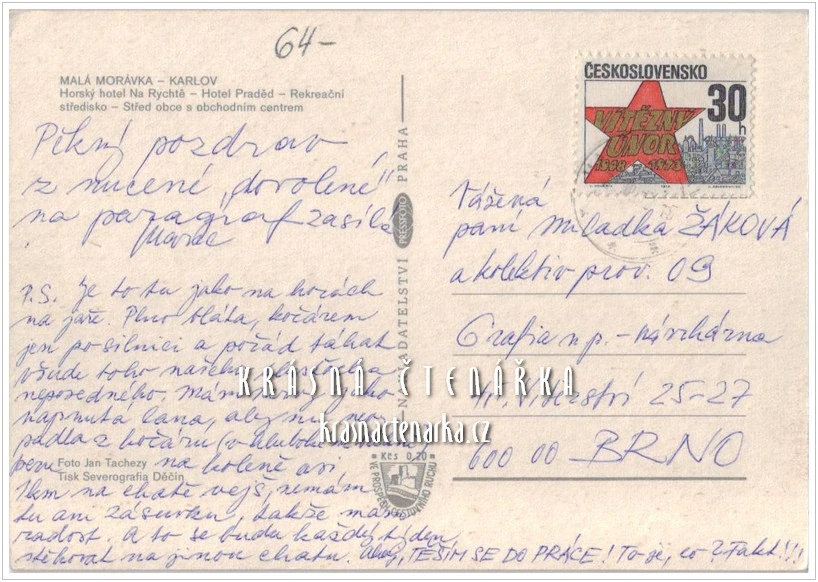 64-
MALÁ MORÁVKA – KARLOV
Horský hotel Na Rychtě – Hotel Praděd – Rekreační
středisko – Střed obce s obchodním centrem
Pěkný pozdrav
z nucené "dovolené"
na paragraf zasílá
Marec
P.S. Je to tu jako na horách
na jaře. Plno bláta, kočárem
jen po silnici a pořád táhat
všude toho našeho
neposedného. Mám
napnutá lana, aby mi ne
padla z kočáru (v hluboké
na koleně asi
1km na chatě vejš, nemám
tu ani zásuvku, takže mám
radost. A to se budu každý týden
stěhovat na jinou chatu. Ahoj, TĚŠÍM SE DO PRÁCE! To je, co? Fakt!!!
Foto Jan Tachezy
Tisk Severografia Děčín
NAKLADATELSTVÍ PRESSFOTO PRAHA
Kčs 0,20
VE PROSPĚCH CESTOVNÍHO RUCHU
ČESKOSLOVENSKO
30 h
VÍTĚZNÝ
ÚNOR
1948 1973
Vážená
paní Mladka ŽÁKOVÁ
a kolektiv prov. 09
Grafia n.p. -
25-27
600 00 BRNO
KRÁSNÁ ČTENÁŘKA
krasnactenarka.cz